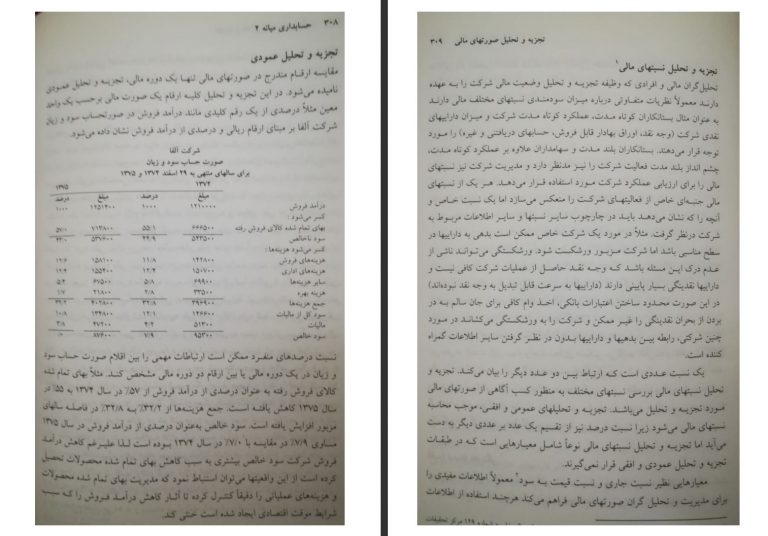 ۳۰۸ حسابداری میانه ۲
تجزیه و تحلیل عمودی
مقایسه ارقام مندرج در صورتهای مالی تنها یک دوره مالی، تجزیه و تحلیل عمودی
نامیده می‌شود. در این تجزیه و تحلیل کلیه ارقام یک صورت مالی برحسب یک واحد
معین مثلاً درصدی از یک رقم کلیدی مانند درآمد فروش در صورتحساب سود و زیان
شرکت آلفا بر مبنای ارقام ریالی و درصدی از درآمد فروش نشان داده می‌شود.
شرکت آلفا
صورت حساب سود و زیان
برای سالهای منتهی به ۲۹ اسفند ۱۳۷۴ و ۱۳۷۵
۱۳۷۴ ۱۳۷۵
مبلغ درصد مبلغ درصد
درآمد فروش ۱۲۱۰۰۰۰ ۱۰۰۰ ۱۲۵۱۴۰۰ ۱۰۰۰
کسر می‌شود:
بهای تمام شده کالای فروش رفته ۶۶۶۵۰۰ ۵۵/۱ ۷۱۳۸۰۰ ۵۷/۰
سود ناخالص ۵۴۳۵۰۰ ۴۴/۹ ۵۳۷۶۰۰ ۴۳/۰
کسر می‌شود هزینه‌ها:
هزینه‌های فروش ۱۴۲۸۰۰ ۱۱/۸ ۱۵۸۱۰۰ ۱۲/۶
هزینه‌های اداری ۱۵۰۷۰۰ ۱۲/۴ ۱۵۵۴۰۰ ۱۲/۴
سایر هزینه‌ها ۶۹۹۰۰ ۵/۸ ۶۷۵۰۰ ۵/۴
هزینه بهره ۳۳۵۰۰ ۲/۸ ۲۱۸۰۰ ۱/۷
جمع هزینه‌ها ۳۹۶۹۰۰ ۳۲/۸ ۴۰۲۸۰۰ ۳۲/۲
سود کل از مالیات ۱۴۶۶۰۰ ۱۲/۱ ۱۳۴۸۰۰ ۱۰/۸
مالیات ۵۱۳۰۰ ۴/۲ ۴۷۲۰۰ ۳/۸
سود خالص ۹۵۳۰۰ ۷/۹ ۸۷۶۰۰
نسبت درصدهای منفرد ممکن است ارتباطات مهمی را بین اقلام صورت حساب سود
و زیان در یک دوره مالی یا بین ارقام دو دوره مالی مشخص کند. مثلاً بهای تمام شده
کالای فروش رفته به عنوان درصدی از درآمد فروش از ۵۷٪ در سال ۱۳۷۴ به ۵۵٪ در
سال ۱۳۷۵ کاهش یافته است. جمع هزینه‌ها از ۳۲/۲٪ به ۳۲/۸٪ در فاصله سالهای
مزبور افزایش یافته است. سود خالص به‌عنوان درصدی از درآمد فروش در سال ۱۳۷۵
مساوی ۷/۹٪ در مقایسه با ۷/۰٪ در سال ۱۳۷۴ بوده است لذا علیرغم کاهش درآمد
فروش شرکت سود خالص بیشتری به سبب کاهش بهای تمام شده محصولات تحصیل
کرده است از این واقعیتها می‌توان استنباط نمود که مدیریت بهای تمام شده محصولات
و هزینه‌های عملیاتی را دقیقاً کنترل کرده تا آثار کاهش درآمد فروش را که سبب
شرایط موقت اقتصادی ایجاد شده است خنثی کند.
تجزیه و تحلیل صورتهای مالی ۳۰۹
تجزیه و تحلیل نسبتهای مالی۱
تحلیل‌گران مالی و افرادی که وظیفه تجزیه و تحلیل وضعیت مالی شرکت را به عهده
دارند معمولاً نظریات متفاوتی درباره میزان سودمندی نسبتهای مختلف مالی دارند
به عنوان مثال بستانکاران کوتاه مدت، عملکرد کوتاه مدت شرکت و میزان داراییهای
نقدی شرکت (وجه نقد، اوراق بهادار قابل فروش، حسابهای دریافتی و غیره) را مورد
توجه قرار می‌دهند. بستانکاران بلند مدت و سهامداران علاوه بر عملکرد کوتاه مدت،
چشم انداز بلند مدت فعالیت شرکت را نیز مدنظر دارد و مدیریت شرکت نیز نسبتهای
مالی را برای ارزیابی عملکرد شرکت مورد استفاده قرار می‌دهد. هر یک از نسبتهای
مالی جنبه‌ای خاص از فعالیتهای شرکت را منعکس می‌سازد اما یک نسبت خاص و
آنچه را که نشان می‌دهد باید در چارچوب سایر نسبتها و سایر اطلاعات مربوط به
شرکت درنظر گرفت. مثلاً در مورد یک شرکت خاص ممکن است بدهی به داراییها در
سطح مناسبی باشد اما شرکت مزبور ورشکست شود. ورشکستگی می‌تواند ناشی از
عدم درک این مسئله باشد که وجه نقد حاصل از عملیات شرکت کافی نیست و
داراییها نقدینگی بسیار پایینی دارند (داراییها به سرعت قابل تبدیل به وجه نقد نبوده‌اند)
در این صورت محدود ساختن اعتبارات بانکی، اخذ وام کافی برای جان سالم به در
بردن از بحران نقدینگی را غیر ممکن و شرکت را به ورشکستگی می‌کشاند در مورد
چنین شرکتی، رابطه بین بدهیها و داراییها بدون در نظر گرفتن سایر اطلاعات گمراه
کننده است.
یک نسبت عددی است که ارتباط بین دو عدد دیگر را بیان می‌کند. تجزیه و
تحلیل نسبتهای مالی بررسی نسبتهای مختلف به منظور کسب آگاهی از صورتهای مالی
مورد تجزیه و تحلیل می‌باشد. تجزیه و تحلیلهای عمومی و افقی، موجب محاسبه
نسبتهای مالی می‌شود زیرا نسبت درصد نیز از تقسیم یک عدد بر عددی دیگر به دست
می‌آید اما تجزیه و تحلیل نسبتهای مالی نوعاً شامل معیارهایی است که در طبقات
تجزیه و تحلیل عمودی و افقی قرار نمی‌گیرند.
معیارهایی نظیر نسبت جاری و نسبت قیمت به سود۲ معمولاً اطلاعات مفیدی را
برای مدیریت و تحلیل گران صورتهای مالی فراهم می‌کند هرچند استفاده از اطلاعات
شماره ۱۲۹ مرکز تحقیقات